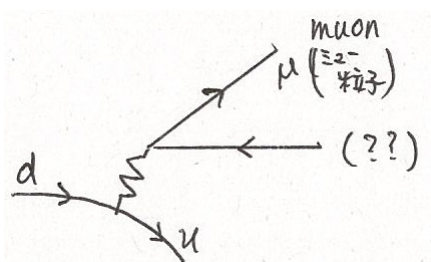 muon
μ (ミュー
粒子)
(??)
d
u